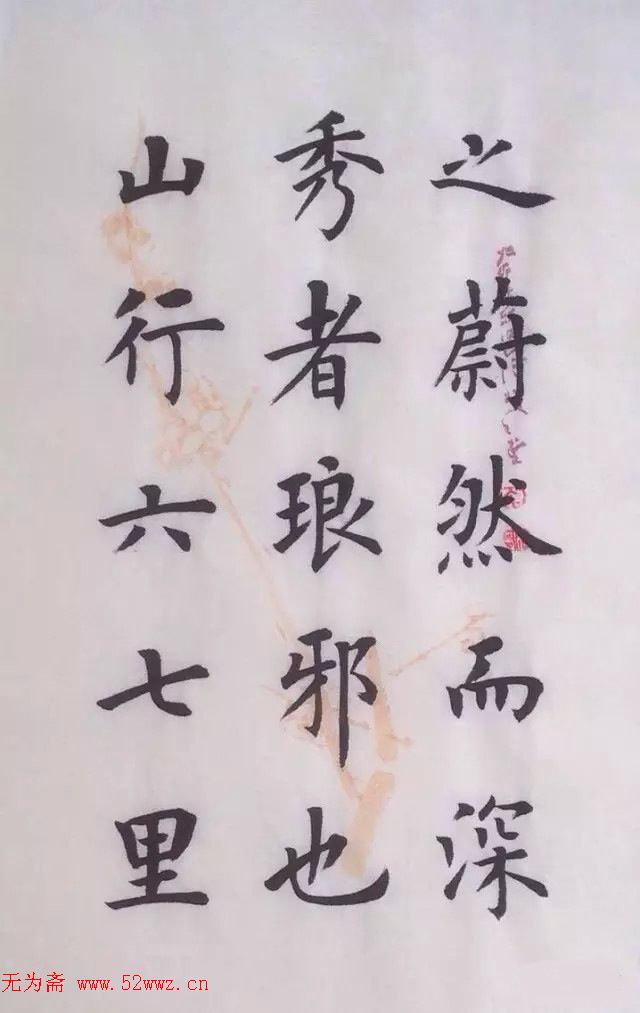 之蔚然而深
秀者琅邪也
山行六七里
无为斋 www.52wwz.cn